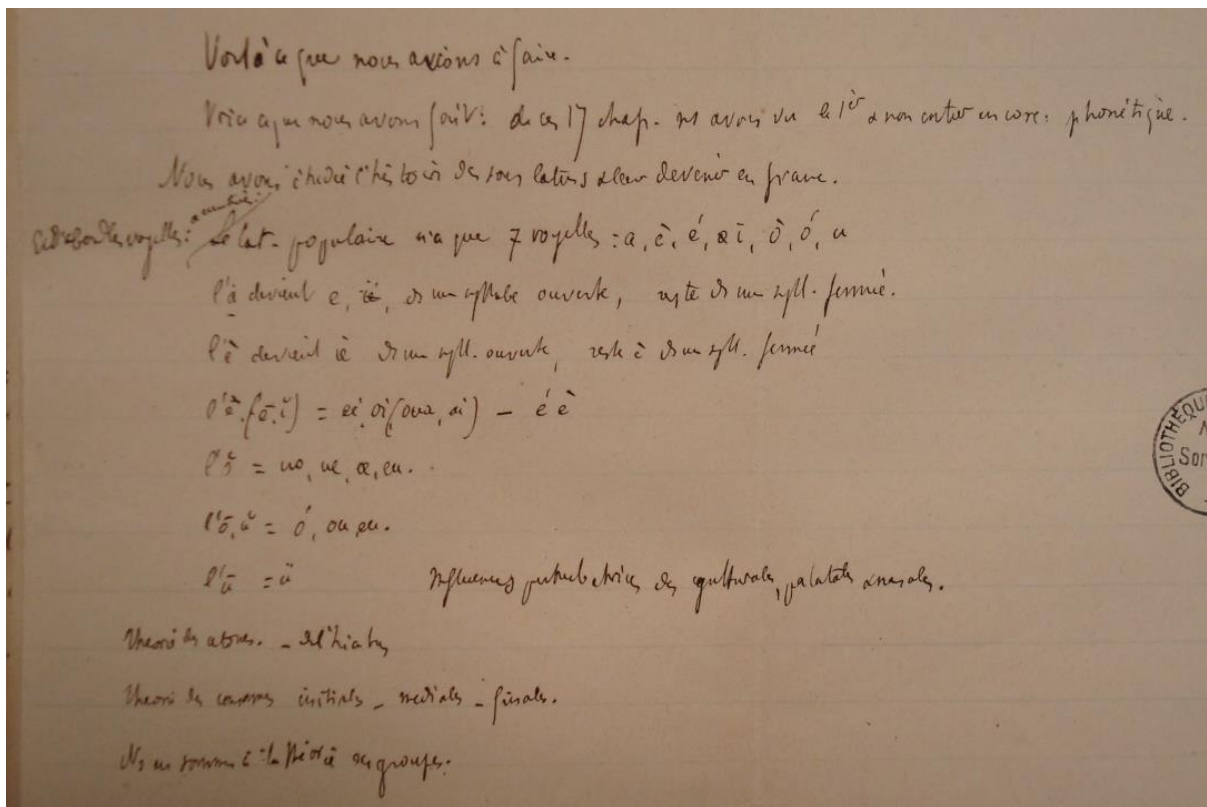 Voilà ce que nous avions à faire.
Voici ce que nous avons fait: de ces 17 chap. ns avons vu le 1er & non entier encore: phonétique.
Nous avons étudié l'histoire des sons latins & leur devenir en franc.
accentuées:
Et d'abord les voyelles: Le lat. populaire n'a que 7 voyelles: a, è, é, ī, ò, ó, u
l'a devient e, ié, ds une syllabe ouverte, reste ds une syll. fermée.
l'è devient iè ds une syll. ouverte, reste è ds une syll. fermée
l'é (ē, ĭ) = ei, oi (oua, ai) - é è
l'ŏ = uo, ue, œ, eu.
l'ō, ŭ = ó, ou, eu.
l'ū = ü Influences perturbatrices des gutturales, palatales & nasales.
Théorie des atones. - de l'hiatus
Théorie des consonnes initiales - médiales - finales.
Ns en sommes à la théorie des groupes.
BIBLIOTHÈQUE
Sor